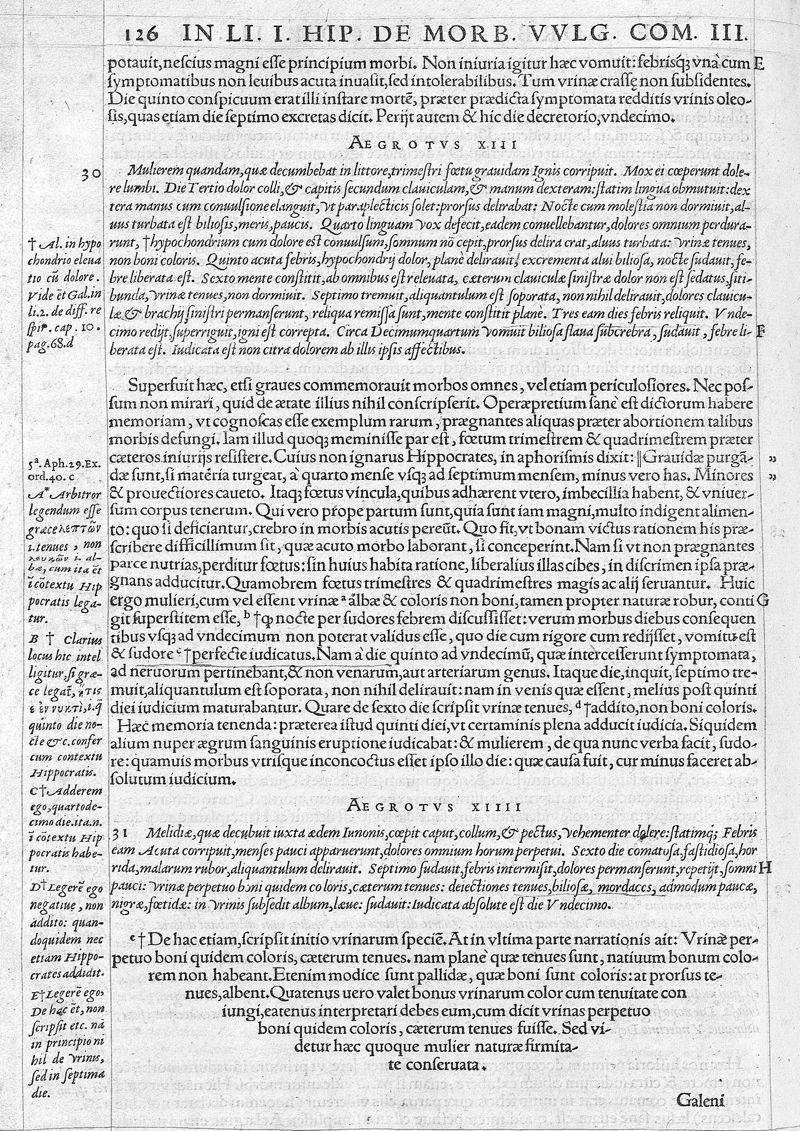 126 IN LI. I. HIP. DE MORB. VVLG. COM. III.
potauit, nescius magni esse principium morbi. Non iniuria igitur hæc vomuit: febrisq; vnà cum E
symptomatibus non leuibus acuta inuasit, sed intolerabilibus. Tum vrinæ crassę non subsidentes.
Die quinto conspicuum erat illi instare mortē, præter prædicta symptomata redditis vrinis oleo-
sis, quas etiam die septimo excretas dicit. Perijt autem & hic die decretorio, vndecimo.
AEGROTVS XIII
30 Mulierem quandam, quæ decumbebat in littore, trimestri fœtu grauidam Ignis corripuit. Mox ei cœperunt dole-
re lumbi. Die Tertio dolor colli, & capitis secundum clauiculam, & manum dexteram: statim lingua obmutuit: dex
tera manus cum conuulsione elanguit, vt paraplecticis solet: prorsus delirabat: Nocte cum molestia non dormiuit, al-
uus turbata est biliosis, meris, paucis. Quarto linguam vox defecit, eadem conuellebantur, dolores omnium perdura-
runt, †hypochondrium cum dolore est conuulsum, somnum nō cepit, prorsus delira crat, aluus turbata: vrinæ tenues,
non boni coloris. Quinto acuta febris, hypochondrij dolor, planè delirauit, excrementa alui biliosa, nocte sudauit, fe-
bre liberata est. Sexto mente constitit, ab omnibus est releuata, cæterum clauiculæ sinistræ dolor non est sedatus, siti-
bunda, vrinæ tenues, non dormiuit. Septimo tremuit, aliquantulum est soporata, non nihil delirauit, dolores clauicu-
læ & brachij sinistri permanserunt, reliqua remissa sunt, mente constitit planè. Tres eam dies febris reliquit. Vnde-
cimo redijt, superriguit, igni est correpta. Circa Decimumquartum vomuit biliosa flaua subcrebra, sudauit, febre li- F
berata est. Iudicata est non citra dolorem ab illus ipsis affectibus.
† Al. in hypo
chondrio eleua
tio cū dolore.
Vide ēt Gal. in
li. 2. de diff. re
spir. cap. 10.
pag. 68. d
Superfuit hæc, etsi graues commemorauit morbos omnes, vel etiam periculosiores. Nec pos-
sum non mirari, quid de ætate illius nihil conscripserit. Operæpretium sanè est dictorum habere
memoriam, vt cognoscas esse exemplum rarum, prægnantes aliquas præter abortionem talibus
morbis defungi. Iam illud quoq; meminisse par est, fœtum trimestrem & quadrimestrem præter
cæteros iniurijs resistere. Cuius non ignarus Hippocrates, in aphorismis dixit: ‖Grauidæ purgā- „
dæ sunt, si matēria turgeat, à quarto mense vsq; ad septimum mensem, minus vero has. Minores „
& prouectiores caueto. Itaq; fœtus vincula, quibus adhærent vtero, imbecillia habent, & vniuer-
sum corpus tenerum. Qui vero prope partum sunt, quia sunt iam magni, multo indigent alimen-
to: quo si deficiantur, crebro in morbis acutis pereūt. Quo fit, vt bonam victus rationem his præ-
scribere difficillimum sit, quæ acuto morbo laborant, si conceperint. Nam si vt non prægnantes
parce nutrias, perditur fœtus: sin huius habita ratione, liberalius illas cibes, in discrimen ipsa præ-
gnans adducitur. Quamobrem fœtus trimestres & quadrimestres magis ac alij seruantur. Huic
ergo mulieri, cum vel essent vrinæ ᵃ albæ & coloris non boni, tamen propter naturæ robur, conti G
git superstitem esse, ᵇ †qȝ nocte per sudores febrem discussisset: verum morbus diebus consequen
tibus vsq; ad vndecimum non poterat validus esse, quo die cum rigore cum redijsset, vomitu est
& sudore ᶜ †perfecte iudicatus. Nam à die quinto ad vndecimū, quæ intercesserunt symptomata,
ad neruorum pertinebant, & non venarum, aut arteriarum genus. Itaque die, inquit, septimo tre-
muit, aliquantulum est soporata, non nihil delirauit: nam in venis quæ essent, melius post quinti
diei iudicium maturabantur. Quare de sexto die scripsit vrinæ tenues, ᵈ †addito, non boni coloris.
Hæc memoria tenenda: præterea istud quinti diei, vt certaminis plena adducit iudicia. Siquidem
alium nuper ægrum sanguinis eruptione iudicabat: & mulierem, de qua nunc verba facit, sudo-
re: quamuis morbus vtrisque inconcoctus esset ipso illo die: quæ causa fuit, cur minus faceret ab-
solutum iudicium.
5ª. Aph. 29. Ex.
ord. 40. c
Aª Arbitror
legendum esse
græce λεπτῶν
i. tenues, non
λευκῶν i. al-
bæ, cum ita ēt
ī cōtextu Hip
pocratis lega-
tur.
B † Clarius
locus hic intel
ligitur, si græ-
ce legat,
i. q
quinto die no-
cte &c. confer
cum contextu
Hippocratis.
C† Adderem
ego, quartode-
cimo die. ita. n.
ī cōtextu Hip
pocratis habe-
tur.
D† Legerē ego
negatiue, non
addito: quan-
doquidem nec
etiam Hippo-
crates addidit.
E† Legerē ego,
De hac ēt, non
scripsit etc. nā
in principio ni
hil de vrinis,
sed in septima
die.
AEGROTVS XIIII
31 Melidiæ, quæ decubuit iuxta ædem Iunonis, cœpit caput, collum, & pectus, vehementer dolere: statimq; Febris
eam Acuta corripuit, menses pauci apparuerunt, dolores omnium horum perpetui. Sexto die comatosa, fastidiosa, hor
rida, malarum rubor, aliquantulum delirauit. Septimo sudauit, febris intermisit, dolores permanserunt, repetijt, somni H
pauci: vrinæ perpetuo boni quidem coloris, cæterum tenues: deiectiones tenues, biliosæ, mordaces, admodum paucæ,
nigræ, fœtidæ: in vrinis subsedit album, læue: sudauit: Iudicata absolute est die Vndecimo.
ᵉ †De hac etiam, scripsit initio vrinarum speciē. At in vltima parte narrationis ait: Vrinæ per-
petuo boni quidem coloris, cæterum tenues. nam planè quæ tenues sunt, natiuum bonum colo-
rem non habeant. Etenim modice sunt pallidæ, quæ boni sunt coloris: at prorsus te-
nues, albent. Quatenus uero valet bonus vrinarum color cum tenuitate con
iungi, eatenus interpretari debes eum, cum dicit vrinas perpetuo
boni quidem coloris, cæterum tenues fuisse. Sed vi-
detur hæc quoque mulier naturæ firmita-
te conseruata.
Galeni